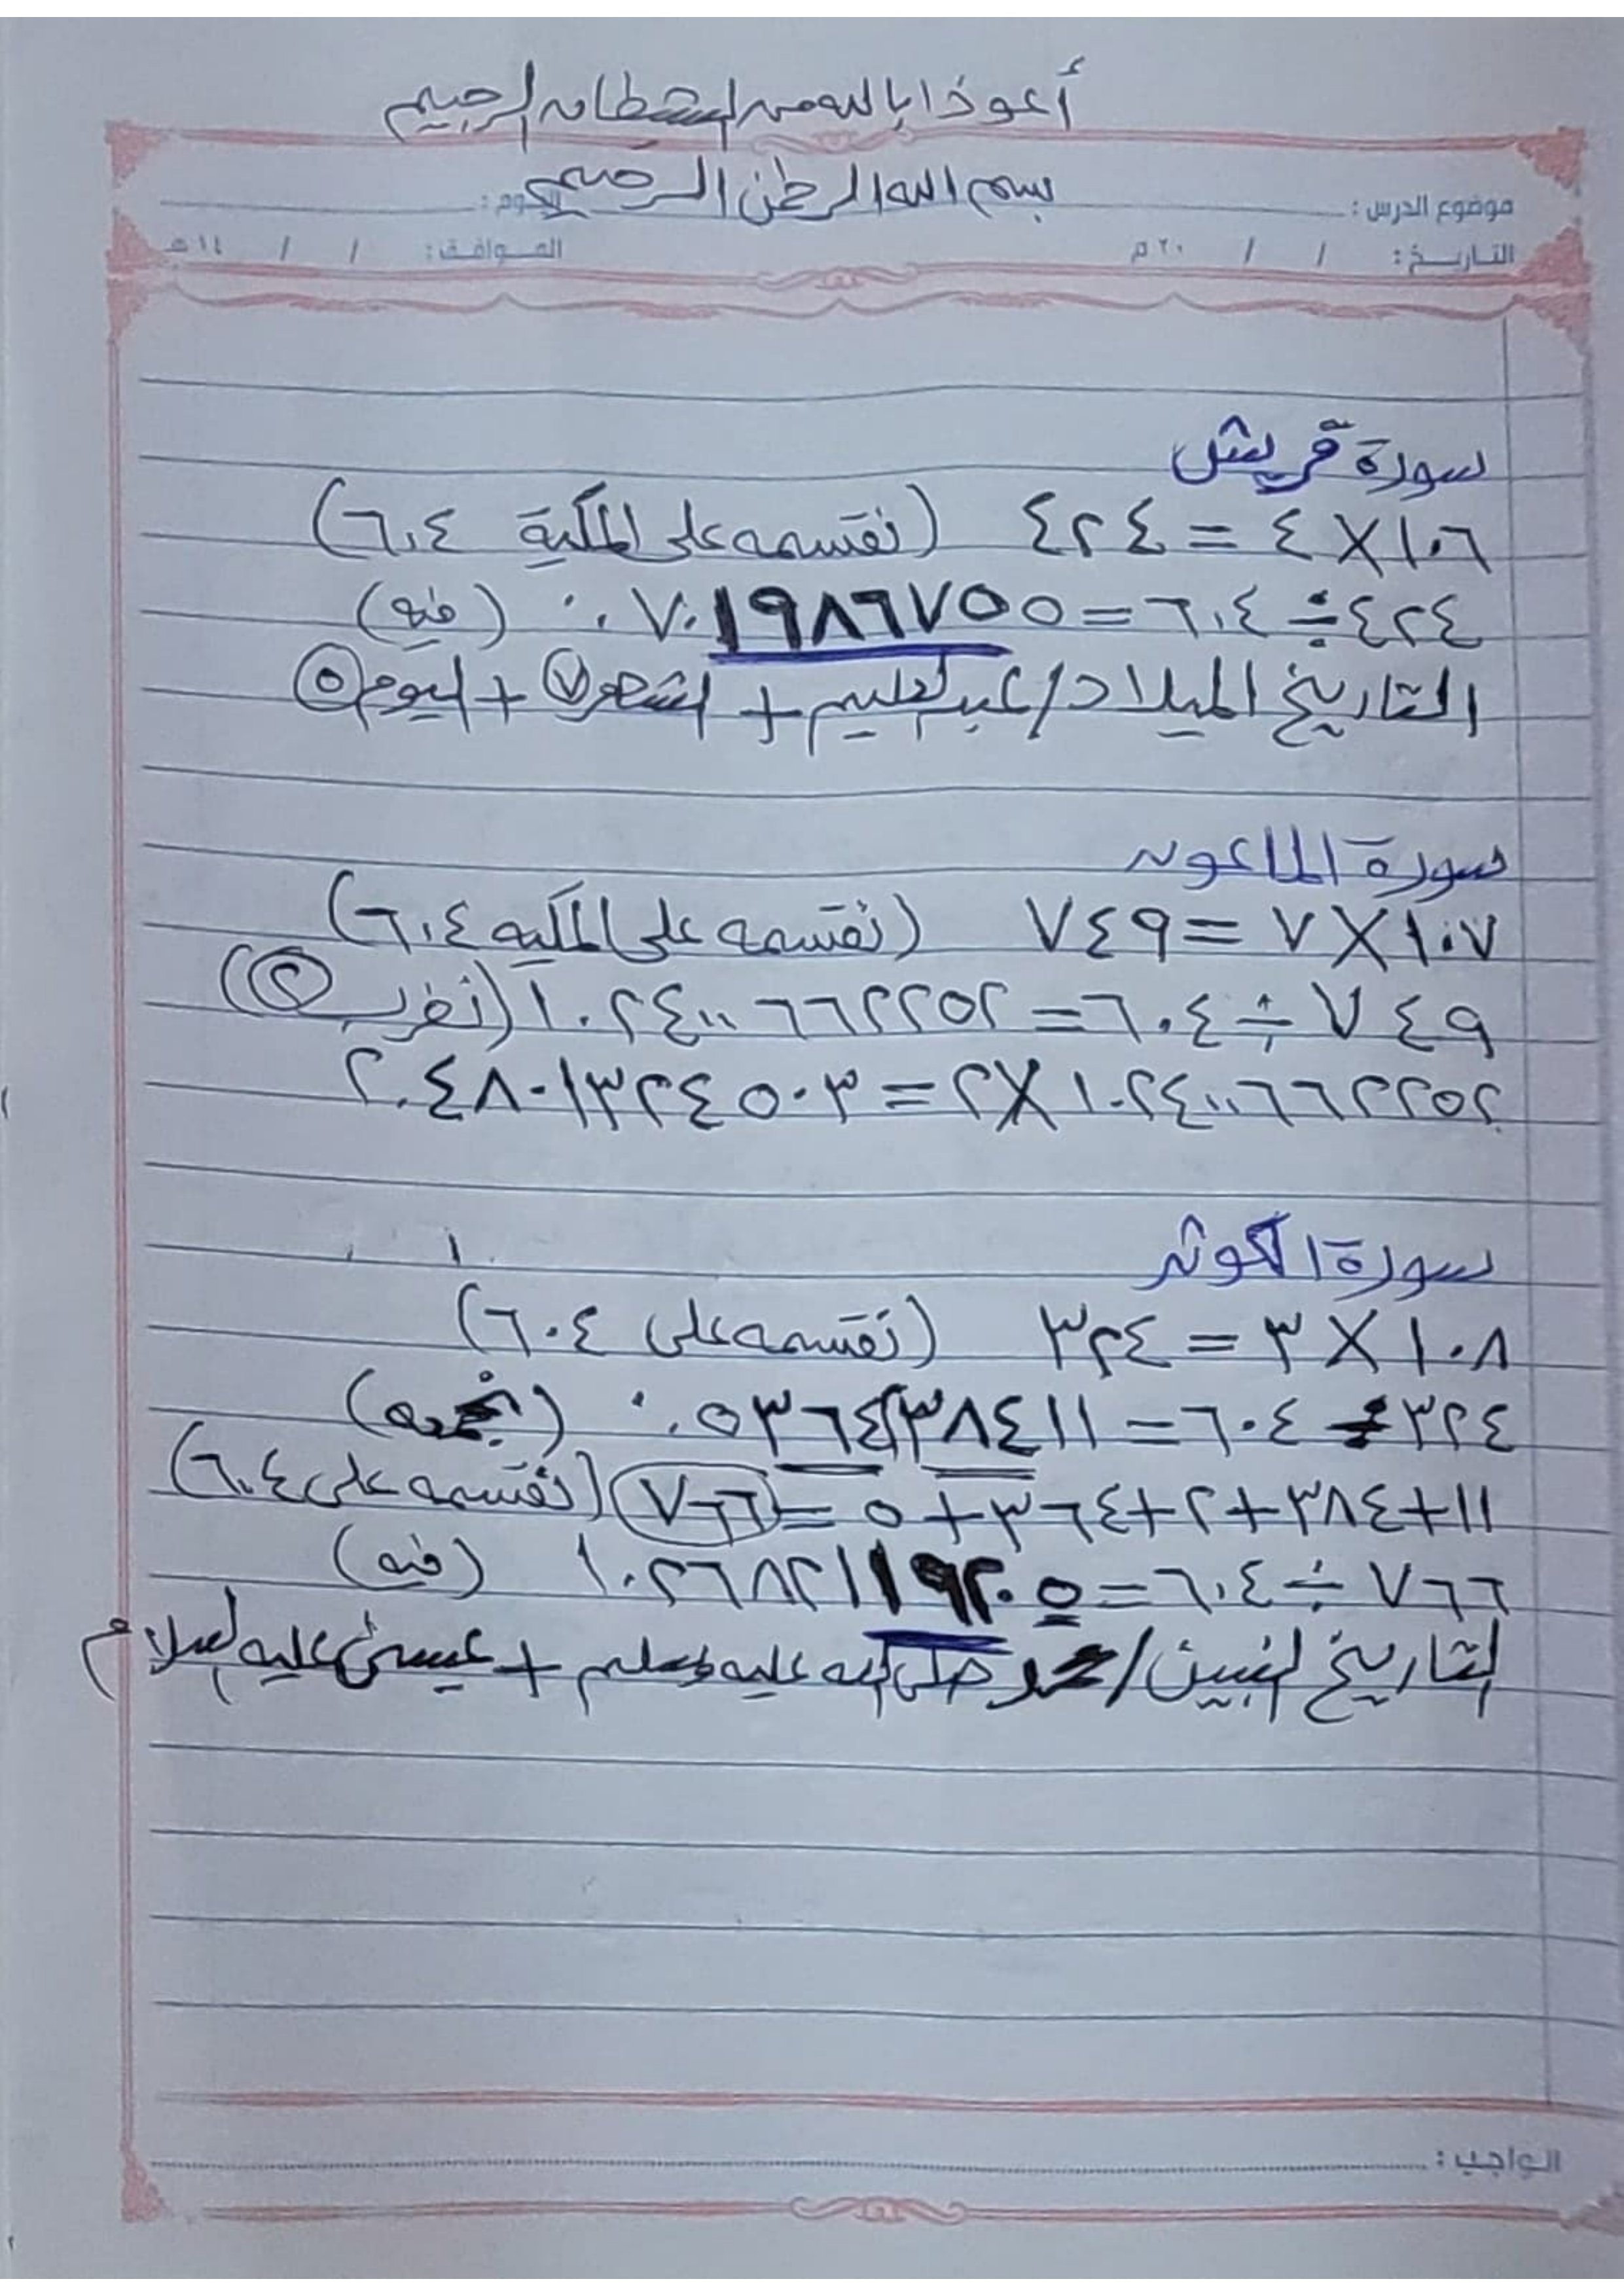 أعوذ بالله من الشيطان الرجيم
بسم الله الرحمن الرحيم
موضوع الدرس : اليوم :
التاريخ : / / ٢٠ م الموافق : / / ١٤ هـ
سورة قريش
١٠٦ × ٤ = ٤٢٤ (نقسمه على المكية ٦٠٤)
٤٢٤ ÷ ٦٠٤ = ٠.٧٠١٩٨٦٧٥٥ (فيه)
التاريخ الميلاد / عبدالعليم + الشهر ٧ + اليوم ٥
سورة الماعون
١٠٧ × ٧ = ٧٤٩ (نقسمه على المكيه ٦٠٤)
٧٤٩ ÷ ٦٠٤ = ١.٢٤٠٠٦٦٢٢٥٢ (نضرب ٢)
١.٢٤٠٠٦٦٢٢٥٢ × ٢ = ٢.٤٨٠١٣٢٤٥٠٣
سورة الكوثر
١٠٨ × ٣ = ٣٢٤ (نقسمه على ٦٠٤)
٣٢٤ ÷ ٦٠٤ = ٠.٥٣٦٤٢٣٨٤١١ (نجمعه)
١١ + ٣٨٤ + ٢ + ٣٦٤ + ٥ = ٧٦٦ (نقسمه على ٦٠٤)
٧٦٦ ÷ ٦٠٤ = ١.٢٦٨٢١١٩٢٠٥ (فيه)
التاريخ النبيين / محمد صلى الله عليه وسلم + عيسى عليه السلام
الواجب :